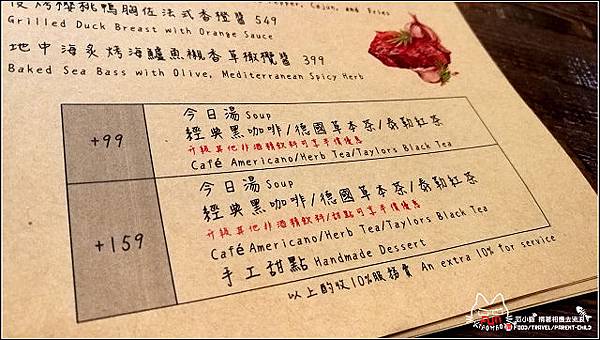 Pepper, Cajun, and Fries
烤櫻桃鴨胸佐法式香橙醬 549
Grilled Duck Breast with Orange Sauce
地中海炙烤海鱸魚襯香草橄欖醬 399
Baked Sea Bass with Olive, Mediterranean Spicy Herb
+99
今日湯 Soup
經典黑咖啡/德國草本茶/泰勒紅茶
升級其他非酒精飲料可享半價優惠
Café Americano/Herb Tea/Taylors Black Tea
+159
今日湯 Soup
經典黑咖啡/德國草本茶/泰勒紅茶
升級其他非酒精飲料/甜點可享半價優惠
Café Americano/Herb Tea/Taylors Black Tea
手工甜點 Handmade Dessert
以上酌收10%服務費 An extra 10% for service
FOOD/TRAVEL/PARENT-CHILD